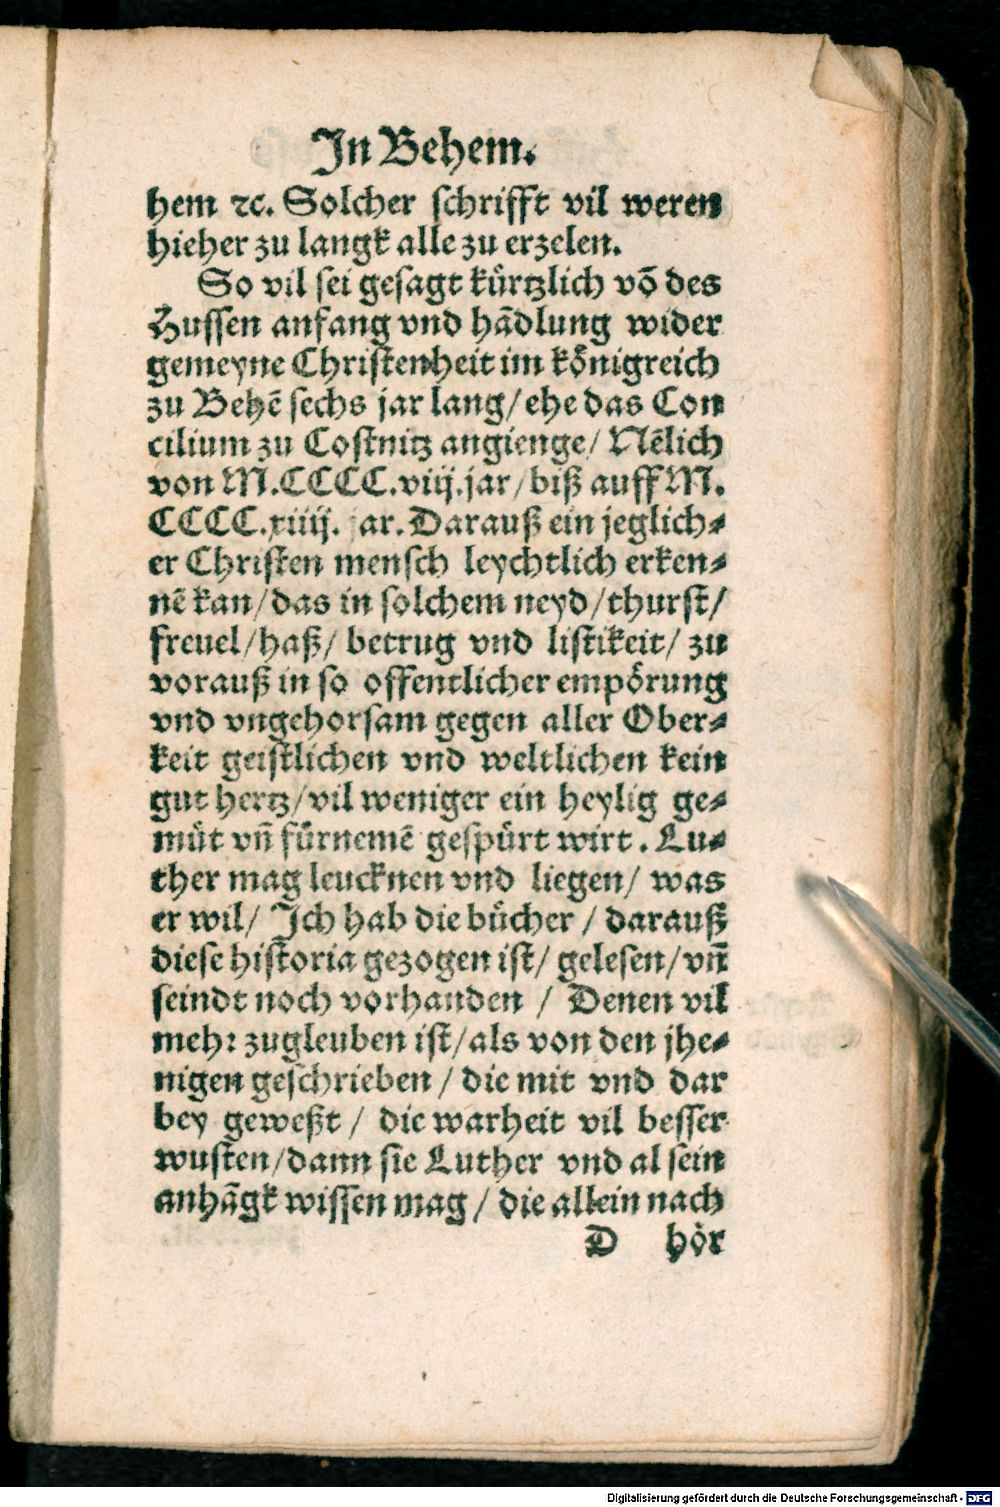 In Behem.
hem ⁊c. Solcher schrifft vil weren
hieher zu langk alle zu erzelen.
So vil sei gesagt kürtzlich vō des
Hussen anfang vnd hādlung wider
gemeyne Christenheit im königreich
zu Behē sechs jar lang/ ehe das Con
cilium zu Costnitz angienge/ Nēlich
von M.CCCC.viij.jar/ biß auff M.
CCCC.xiiij. jar. Darauß ein jeglich⸗
er Christen mensch leychtlich erken⸗
nē kan/ das in solchem neyd/ thurst/
freuel/ haß/ betrug vnd listikeit/ zu
vorauß in so offentlicher empörung
vnd vngehorsam gegen aller Ober⸗
keit geistlichen vnd weltlichen kein
gut hertz/ vil weniger ein heylig ge⸗
müt vñ fürnemē gespürt wirt. Lu⸗
ther mag leucknen vnd liegen/ was
er wil/ Ich hab die bücher / darauß
diese historia gezogen ist/ gelesen/ vñ
seindt noch vorhanden / Denen vil
mehr zugleuben ist/ als von den jhe⸗
nigen geschrieben / die mit vnd dar
bey geweßt / die warheit vil besser
wusten/ dann sie Luther vnd al sein
anhāgk wissen mag / die allein nach
D hör
Digitalisierung gefördert durch die Deutsche Forschungsgemeinschaft - DFG